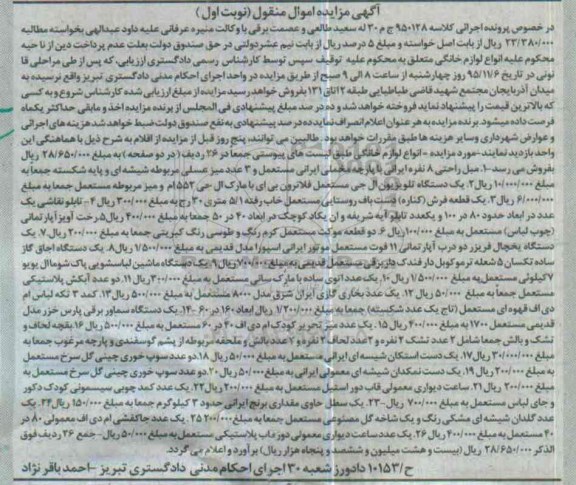 آگهی مزایده اموال منقول (نوبت اول)
در خصوص پرونده اجرائی کلاسه ۹۵۰۱۳۸ ج م ۳۰ له سعید طالعی و عصمت برقی با وکالت منیره عرفانی علیه داود عبدالهی بخواسته مطالبه
۲۳/۳۸۰/۰۰۰ ریال از بابت اصل خواسته و مبلغ ۵ درصد ریال از بابت نیم عشر دولتی در حق صندوق دولت بعلت عدم پرداخت دین از ناحیه
محکوم علیه انواع لوازم خانگی متعلق به محکوم علیه توقیف سپس توسط کارشناس رسمی دادگستری ارزیابی، که پس از طی مراحل قا
نونی در تاریخ ۹۵/۱۱/۶ روز چهارشنبه از ساعت ۸ الی ۹ صبح از طریق مزایده در واحد اجرای احکام مدنی دادگستری تبریز واقع نرسیده به
میدان آذربایجان مجتمع شهید قاضی طباطبایی طبقه ۲ اتاق ۱۳۱ بفروش خواهد رسید مزایده از مبلغ ارزیابی شده کارشناس شروع و به کسی
که بالاترین قیمت را پیشنهاد نماید فروخته خواهد شد و ده در صد مبلغ پیشنهادی فی المجلس از برنده مزایده اخذ و مابقی حداکثر یکماه
فرصت داده میشود. برنده مزایده به هر عنوان اعلام انصراف نماید ده در صد پیشنهادی به نفع صندوق دولت ضبط خواهد شد هزینه های اجرائی
و عوارض شهرداری و سایر هزینه ها طبق مقررات خواهد بود. طالبین می توانند، پنج روز قبل از مزایده از اقلام به شرح ذیل با هماهنگی این
واحد بازدید نمایند -مورد مزایده - انواع لوازم خانگی طبق لیست های پیوستی جمعا در ۲۶ ردیف (در دو صفحه) به مبلغ ۲۸/۶۵۰/۰۰۰ ریال
بفروش می رسد -۱. مبل راحتی ۸ نفره ایرانی با پارچه مخملی ایرانی مستعمل و ۳ عدد میز عسلی مربوطه شیشه ای و پایه شکسته جمعا به
مبلغ ۱۰/۰۰۰/۰۰۰ ریال ۲. یک دستگاه تلویزیون ال جی مستعمل فلاترون بی ای با مارک ال جی ۵۵۲ ام و میز مربوطه مستعمل جمعا به مبلغ
۶/۰۰۰/۰۰۰ ریال ۳. یک قطعه فرش (کناره) دست باف روستایی مستعمل خاب رفته ۱/۵ متری ۳۰ رج به مبلغ ۳۰۰/۰۰۰ ریال ۴- تابلو نقاشی یک
عدد در ابعاد حدود ۸۰ در ۱۰۰ و یکعدد تابلو آیه شریفه و ان یکاد کوچک در ابعاد ۴۰ در ۵۰ جمعا به مبلغ ۴۰۰/۰۰۰ ریال ۵. رخت آویز آپارتمانی
(چوب لباس) مستعمل به مبلغ ۱۰۰/۰۰۰ ریال ۶. دو قطعه موکت مستعمل کرم رنگ و طوسی رنگ کبریتی جمعا به مبلغ ۲۰۰/۰۰۰ ریال ۷. یک
دستگاه یخچال فریزر دو درب آپارتمانی ۱۱ فوت مستعمل موتور ایرانی اسپورا مدل قدیمی به مبلغ ۱/۵۰۰/۰۰۰ ریال ۸. یک دستگاه اجاق گاز
ساده تکسان ۵ شعله ترموکوپل دار فندک دار برقی مستعمل قدیمی به مبلغ ۷۰۰/۰۰۰ ریال ۹. یک دستگاه ماشین لباسشویی پاک شوما ال یو یو
۷ کیلوئی مستعمل به مبلغ ۱/۵۰۰/۰۰۰ ریال ۱۰. یک عدد اتوی ساده با مارک سانی مستعمل به مبلغ ۳۰۰/۰۰۰ ریال ۱۱. دو عدد آبکش پلاستیکی
مستعمل جمعاً به مبلغ ۵۰/۰۰۰ ریال ۱۲. یک عدد بخاری گازی ایران شرق مدل ۸۰۰۰ مستعمل به مبلغ ۵۰۰/۰۰۰ ریال ۱۳. کمد ۳ تکه لباس ام
دی اف قهوه ای مستعمل (تاج یک عدد شکسته) جمعا به مبلغ ۱/۲۰۰/۰۰۰ ریال ابعاد ۱۶۰ در ۶۰ -۱۴. یک دستگاه سماور برقی پارس خزر مدل
قدیمی مستعمل ۱۷۰۰ به مبلغ ۴۰۰/۰۰۰ ریال ۱۵. یک عدد میز تحریر کوچک ام دی اف ۴۰ در ۶۰ مستعمل به مبلغ ۵۰۰/۰۰۰ ریال ۱۶. بقچه لحاف و
تشک و بالش جمعا شامل ۲ عدد تشک ۲ نفره و ۲ عدد لحاف ۲ نفره و ۷ عدد بالش و ملحفه مربوطه از پشم گوسفندی و پارچه مرغوب جمعا به
مبلغ ۳۰۰/۰۰۰ ریال ۱۷. یک دست استکان شیسه ای ایرانی مستعمل به مبلغ ۵۰/۰۰۰ ریال ۱۸. دو عدد سوپ خوری چینی گل سرخ مستعمل
به مبلغ ۲۰۰/۰۰۰ ریال ۱۹. یک دست نمکدان شیشه ای معمولی ایرانی به مبلغ ۵۰/۰۰۰ ریال ۲۰. دو عدد سوپ خوری چینی گل سرخ مستعمل به
مبلغ ۲۰۰/۰۰۰ ریال ۲۱. ساعت دیواری معمولی قاب دور استیل مستعمل به مبلغ ۲۰۰/۰۰۰ ریال ۲۲. یک عدد کمد چوبی سیسمونی کودک دکور
و جای لباس مستعمل به مبلغ ۷۰۰/۰۰۰ ریال -۲۳. یک سطل حاوی مقداری برنج ایرانی حدود ۳ کیلوگرم جمعا به مبلغ ۱۵۰/۰۰۰ ریال ۲۴. یک
عدد گلدان شیشه ای مشکی رنگ و یک شاخه گل مصنوعی مستعمل جمعا به مبلغ ۲۰۰/۰۰۰ ۲۵. یک عدد جاکفشی ام دی اف معمولی ۸۰ در
۴۰ مستعمل به مبلغ ۴۰۰/۰۰۰ ریال ۲۶. یک عدد ساعت دیواری معمولی دور ماب پلاستیکی مستعمل به مبلغ ۵۰/۰۰۰ ریال- جمع ۲۶ ردیف فوق
الذکر ۲۸/۶۵۰/۰۰۰ ریال (بیست و هشت میلیون و ششصد و پنجاه هزار ریال) برآورد و اعلام می گردد.
ح/۱۰۱۵۳ دادورز شعبه ۳۰ اجرای احکام مدنی دادگستری تبریز -احمد باقر نژاد